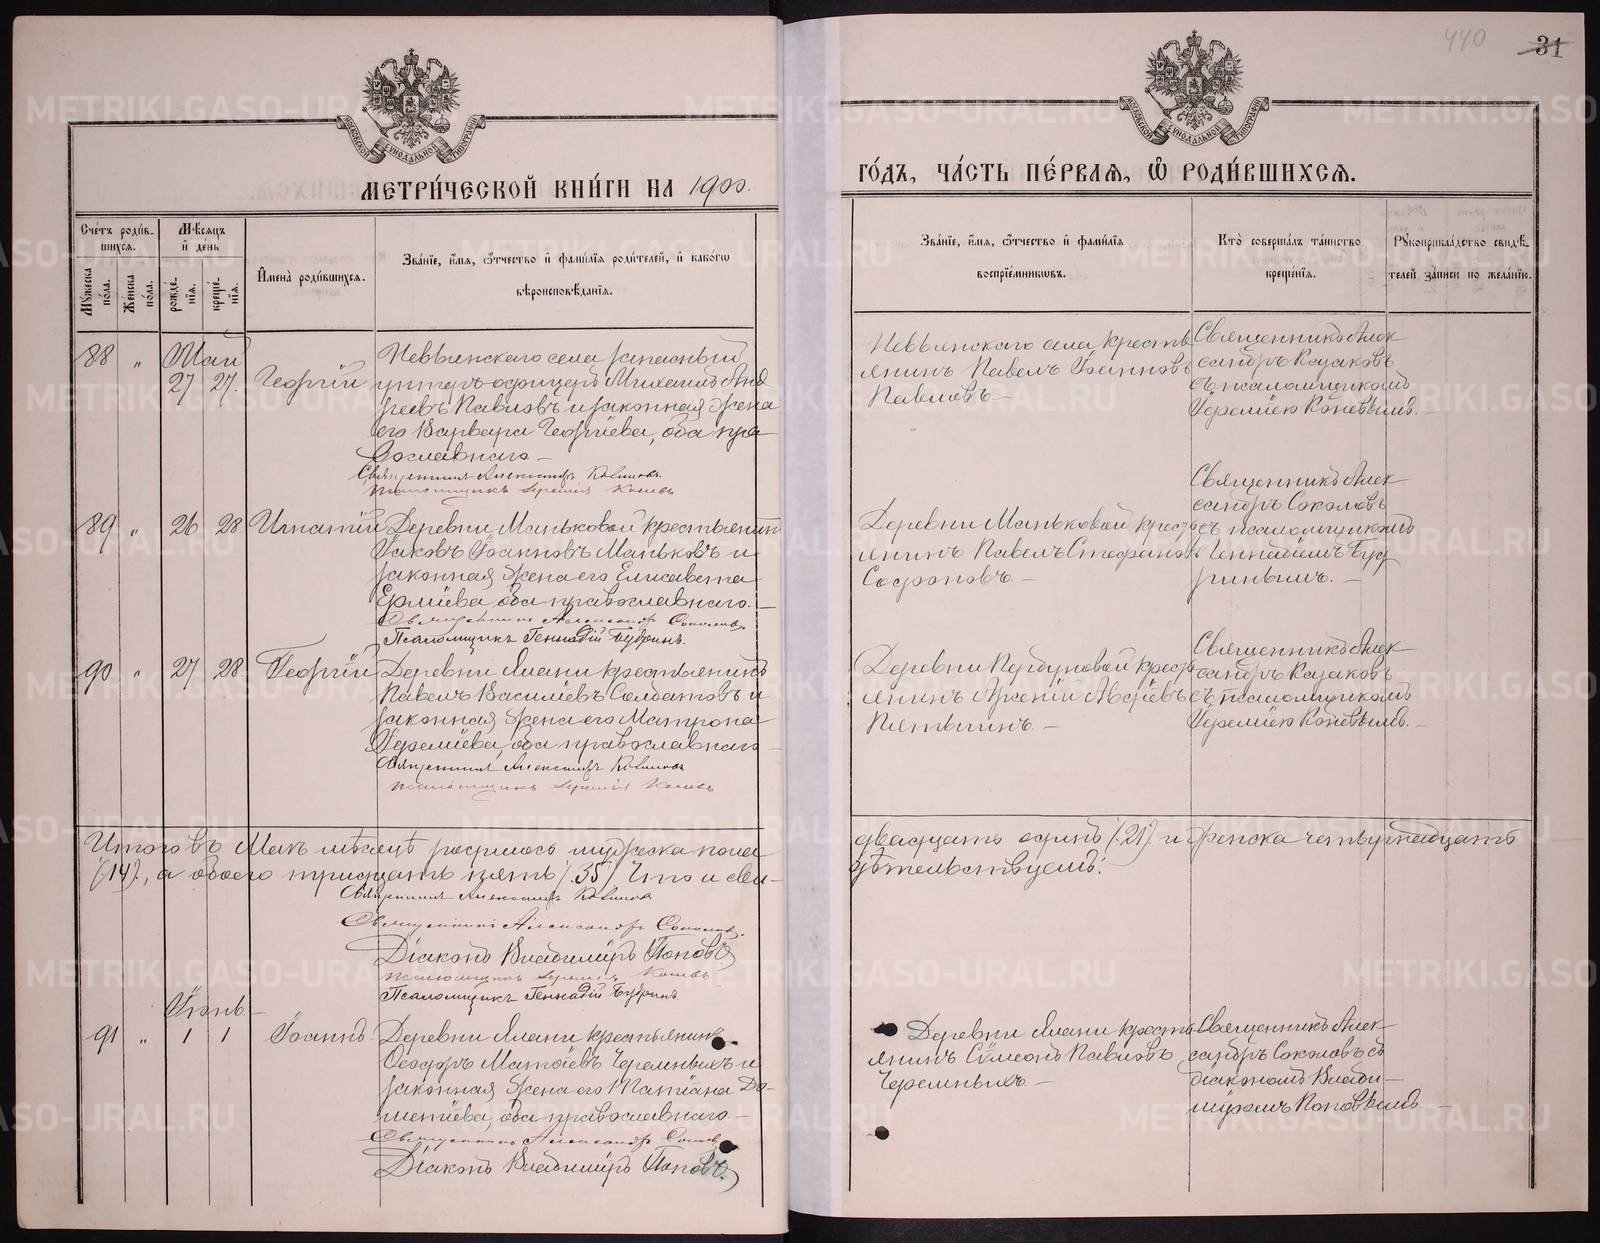 440
31
МЕТРИ́ЧЕСКОЙ КНИ́ГИ НА 1900.
ГО́ДЪ, ЧА́СТЬ ПЕ́РВАЯ, Ѡ҆ РОДИ́ВШИХСЯ.
Сче́тъ роди́в-
шихся.
Му́жеска по́ла.
Же́нска по́ла.
Мѣ́сяцъ и҆ де́нь
рожде́-
нія.
креще́-
нія.
И҆мена̀ роди́вшихся.
Зва́ніе, и҆́мя, ѻ҆́тчество и҆ фами́лія роди́телей, и҆ како́гѡ
вѣроисповѣ́данія.
Зва́ніе, и҆́мя, ѻ҆́тчество и҆ фами́лія
воспріе́мниковъ.
Кто̀ соверша́лъ та́инство
креще́нія.
Рꙋкоприкла́дство свидѣ́-
телей за́писи по жела́нію.
88 " Май
27 27. Георгій
Невьянскаго села запасный
унтеръ-офицеръ Михаилъ Анд
реевъ Павловъ и законная жена
его Варвара Георгіева, оба пра
вославнаго —
Священникъ Александръ
Псаломщикъ Іеремія Коневъ
Невьянскаго села кресть
янинъ Павелъ Іоанновъ
Павловъ —
Священникъ Алек
сандръ Казаковъ
съ псаломщикомъ
Іереміею Коневымъ. —
89 " 26 28. Игнатій
Деревни Маньковой крестьянинъ
Іаковъ Іоанновъ Маньковъ и
законная жена его Елисавета
Ерміева, оба православнаго. —
Священникъ Александръ Соколовъ.
Псаломщикъ Геннадій Будринъ.
Деревни Маньковой кресть
янинъ Павелъ Стефановъ
Софроновъ. —
Священникъ Алек
сандръ Соколовъ
съ псаломщикомъ
Геннадіемъ Буд
ринымъ. —
90 " 27 28. Георгій
Деревни Ялани крестьянинъ
Павелъ Василіевъ Солдатовъ и
законная жена его Матрона
Іереміева, оба православнаго —
Священникъ Александръ
Псаломщикъ Іеремія Коневъ
Деревни кресть
янинъ Арсеній
Пятыгинъ. —
Священникъ Алек
сандръ Казаковъ
съ псаломщикомъ
Іереміею Коневымъ. —
Итого въ Маѣ мѣсяцѣ родилось мужеска пола
двадцать одинъ (21) и женска четырнадцать
(14), а обоего тридцать пять (35) Что и сви-
дѣтельствуемъ:
Священникъ Александръ
Священникъ Александръ Соколовъ.
Діаконъ Владиміръ Поповъ
Псаломщикъ Іеремія Коневъ
Псаломщикъ Геннадій Будринъ
Іюнь —
91 " 1 1 Іоаннъ
Деревни Ялани крестьянинъ
Ѳеодоръ Матѳіевъ Черемныхъ и
законная жена его Татіана До-
метіева, оба православнаго —
Священникъ Александръ
Діаконъ Владиміръ Поповъ.
Деревни Ялани кресть
янинъ Сѵмеонъ Павловъ
Черемныхъ. —
Священникъ Алек
сандръ Соколовъ съ
діакономъ Влади-
міромъ Поповымъ —
METRIKI.GASO-URAL.RU